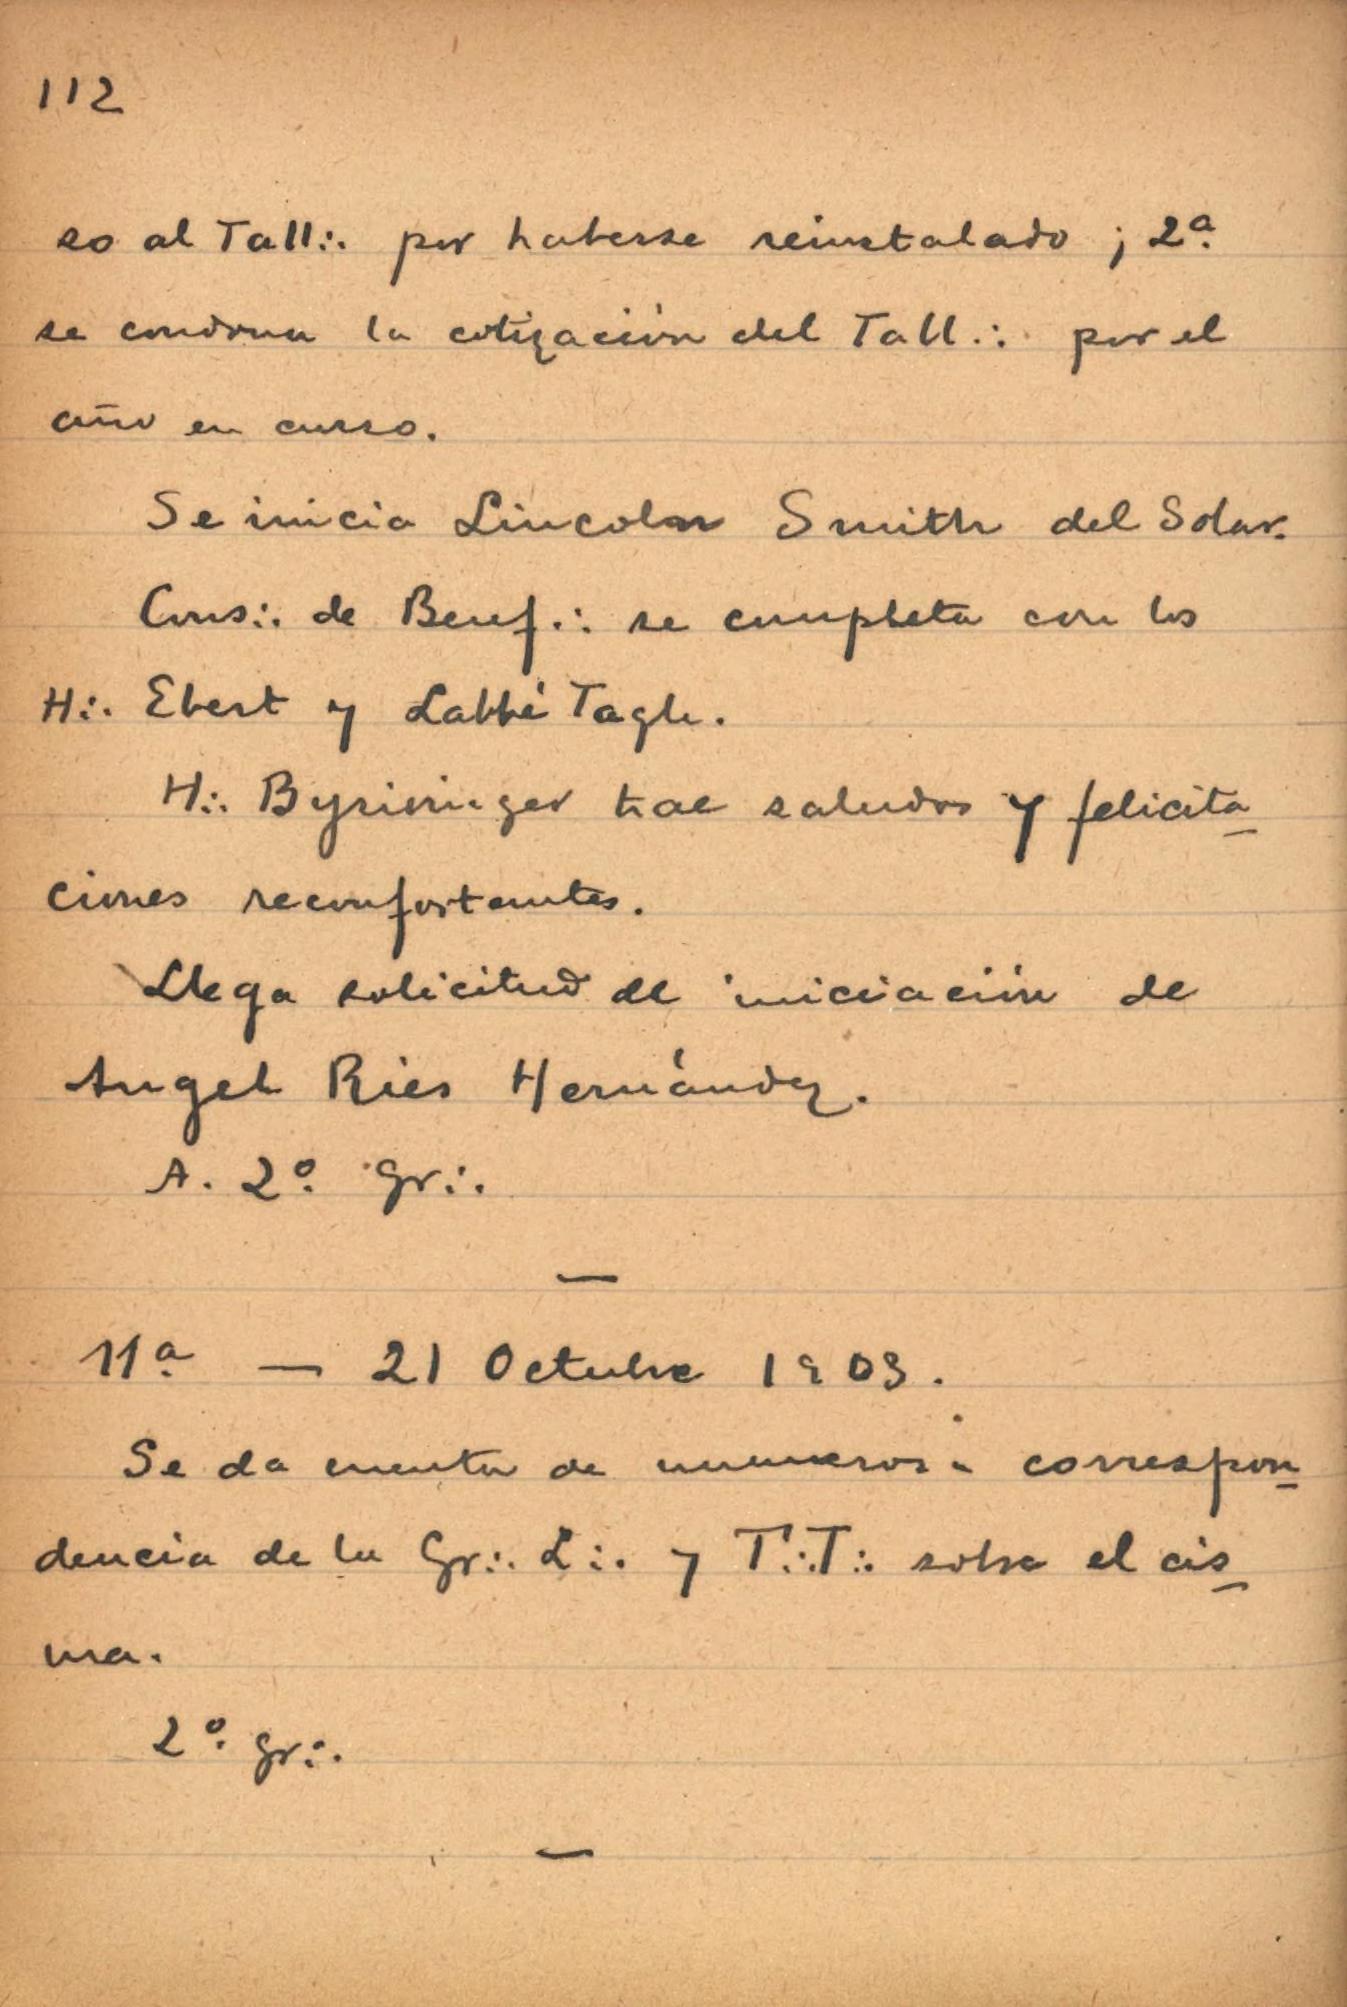 112
so al Tall∴ por haberse reinstalado ; 2ª
se condona la cotización del Tall∴ por el
año en curso.
Se inicia Lincoln Smith del Solar.
Coms∴ de Benf∴ se completa con los
H∴ Ebert y Labbé Tagle.
H∴ trae saludos y felicita-
ciones reconfortantes.
Llega solicitud de iniciación de
Angel Ries Hernández.
A. 2º Gr∴
—
11ª — 21 Octubre 1903.
Se da cuenta de numerosa correspon-
dencia de la Gr∴ L∴ y T∴T∴ sobre el cis-
ma.
2º gr∴
—